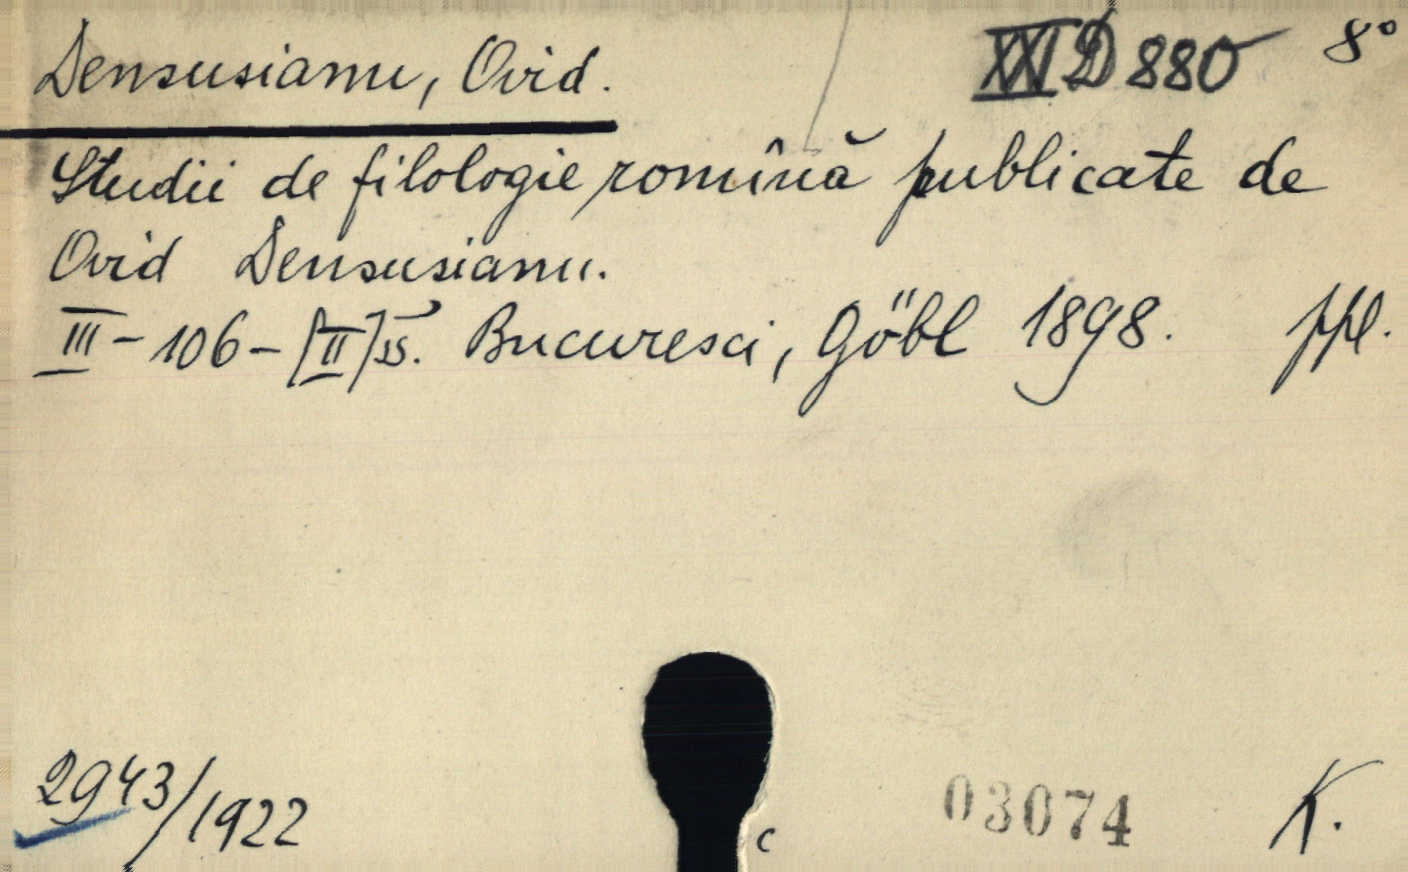 Densusianu, Ovid.
XXI D 880 8°
Studii de filologie romînă publicate de
Ovid Densusianu.
III - 106 - [II] s. Bucuresci, Göbl 1898. ppl.
2943/1922
c
03074
K.